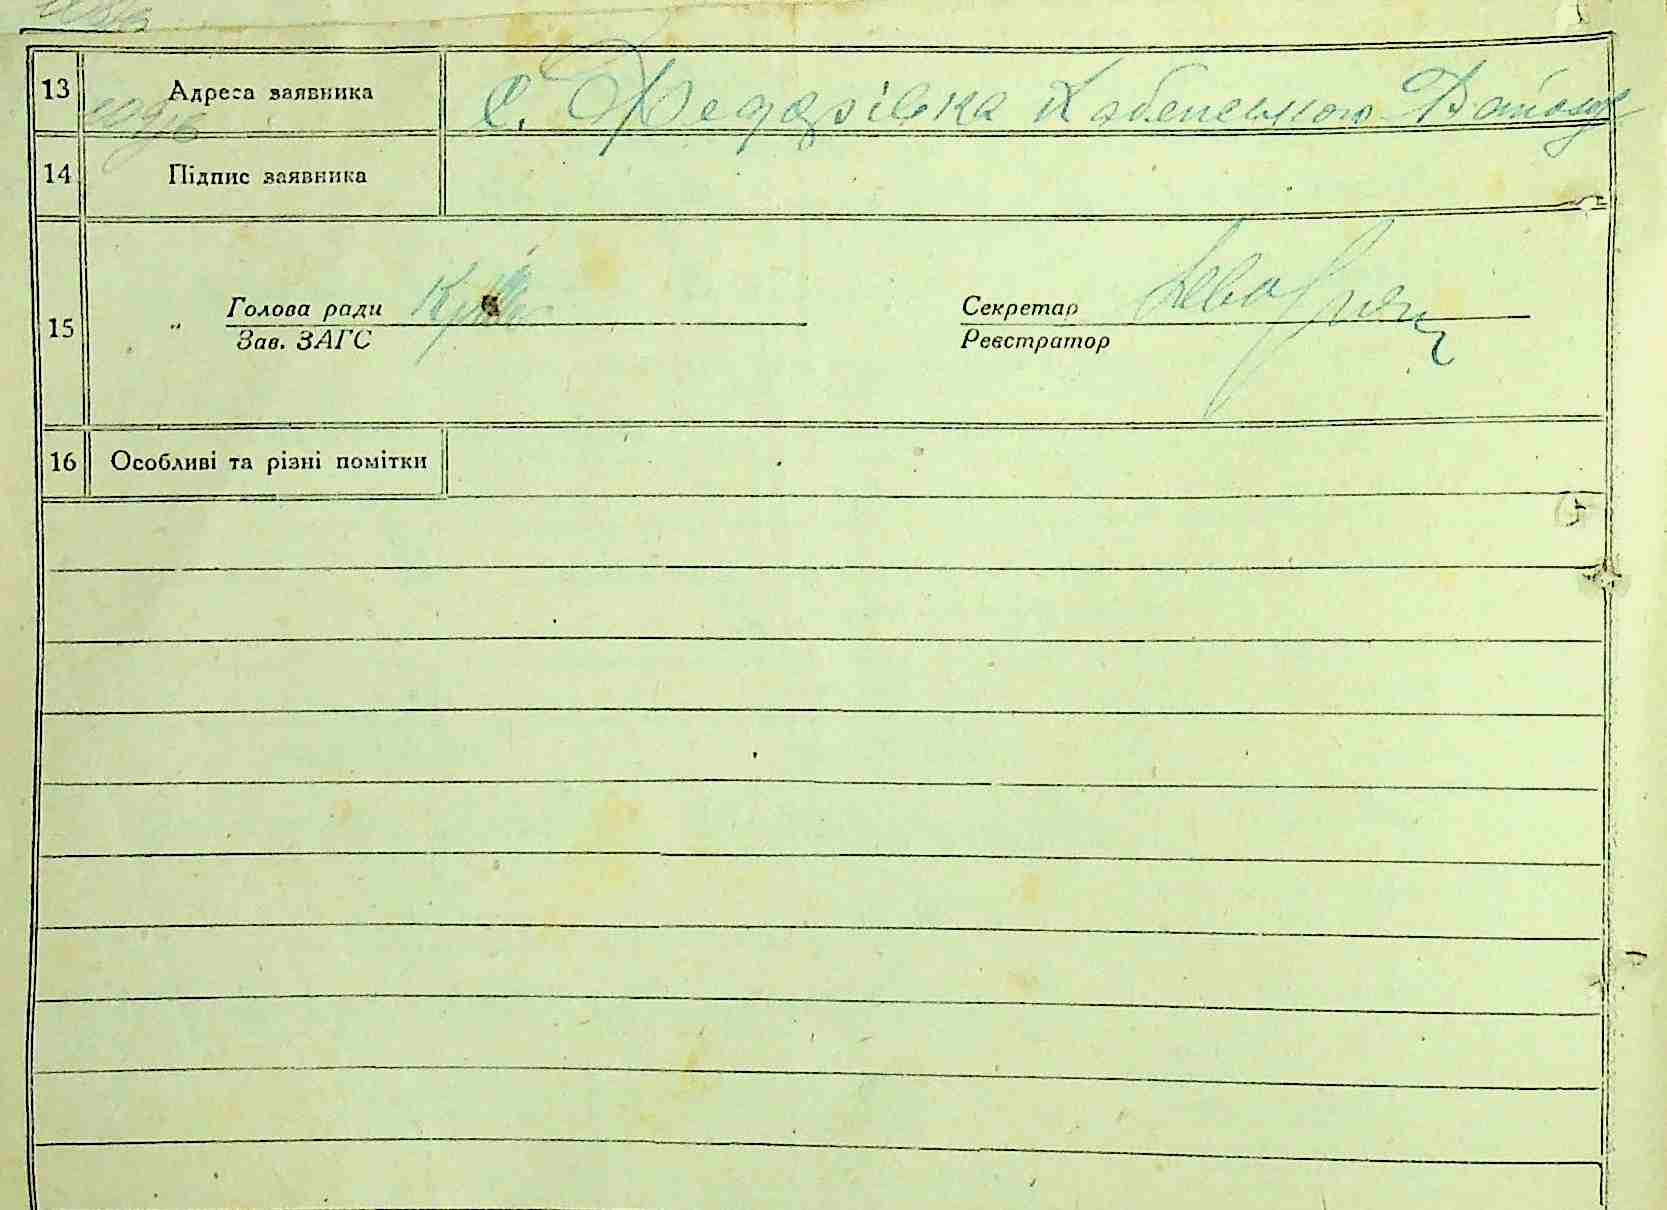 13 Адреса заявника С. Федорівка Кобеленського Району
14 Підпис заявника
15 Голова ради Секретар
Зав. ЗАГС Реєстратор
16 Особливі та різні помітки